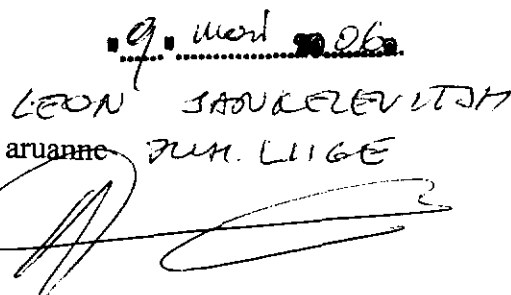 "9" mai 06a.
LEON JANKELEVITSH
aruanne JUH. LIIGE